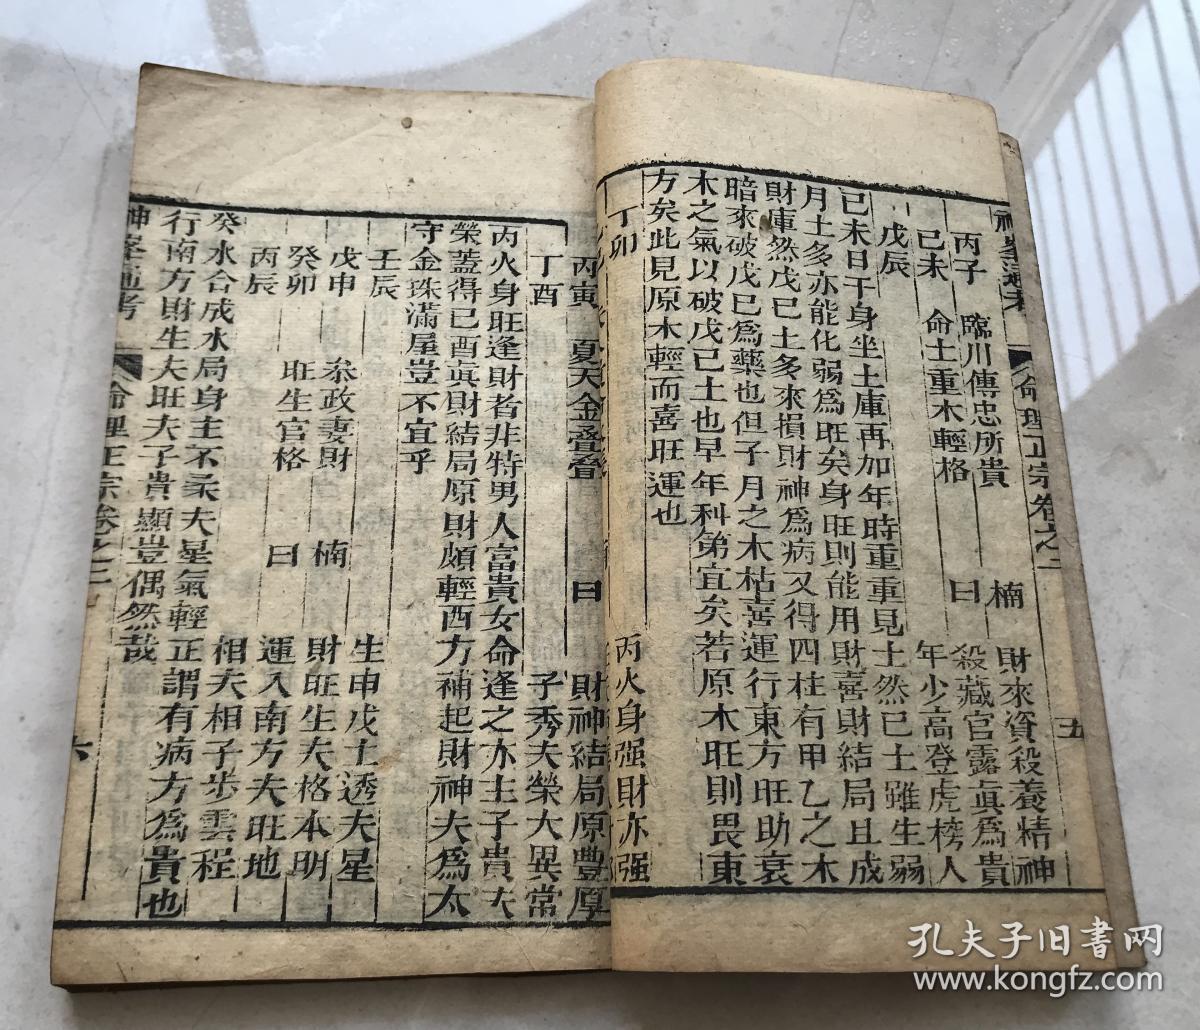 神峯通考 命理正宗卷之二 五
丙子 臨川傳忠所貴 楠 財來資殺養精神
己未 命土重木輕格 曰 殺藏官露眞爲貴
戊辰 年少高登虎榜人
己未日干身坐土庫再加年時重重見土然己土雖生弱
月土多亦能化弱爲旺矣身旺則能用財喜財結局且成
財庫然戊己土多來損財神爲病又得四柱有甲乙之木
暗來破戊己爲藥也但子月之木枯喜運行東方旺助衰
木之氣以破戊己土也早年科第宜矣若原木旺則畏東
方矣此見原木輕而喜旺運也
丁卯 丙火身强財亦强
丙寅 夏天金叠叠 曰 財神結局原豊厚
丁酉 子秀夫榮大異常
丙火身旺逢財者非特男人富貴女命逢之亦主子貴夫
榮蓋得巳酉眞財結局原財頗輕西方補起財神夫爲太
守金珠滿屋豈不宜乎
壬辰 生申戊土透夫星
戊申 叅政妻財 楠 財旺生夫格本明
癸卯 旺生官格 曰 運入南方夫旺地
丙辰 相夫相子步雲程
癸水合成水局身主不柔夫星氣輕正謂有病方爲貴也
行南方財生夫旺夫子貴顯豈偶然哉
神峯通考 命理正宗卷之二 六
孔夫子旧書网
www.kongfz.com